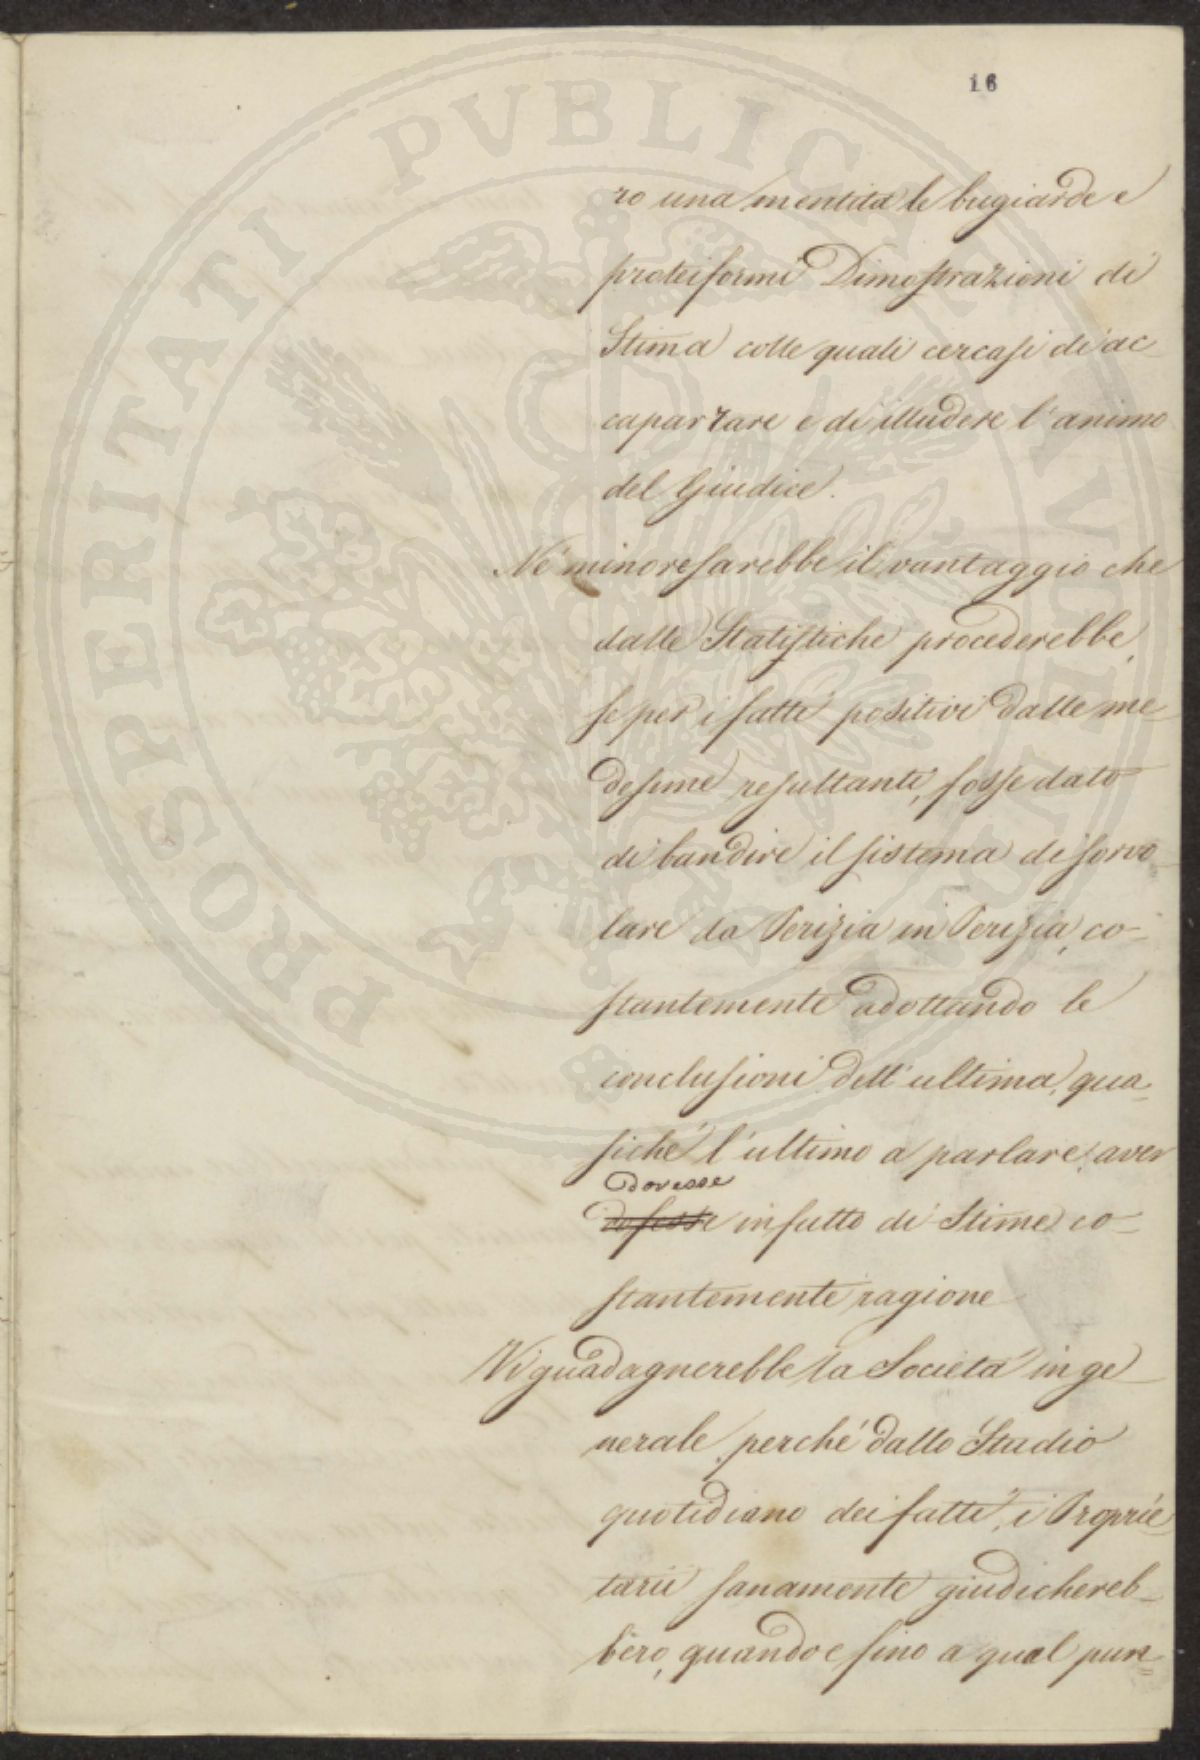 16
ro una mentita le bugiarde e
proteiformi Dimostrazioni di
Stima colle quali cercasi di ac
caparrare e di illudere l'animo
del Giudice.
Nè minore sarebbe il vantaggio che
dalle Statistiche procederebbe,
se per i fatti positivi dalle me
desime resultanti, fosse dato
di bandire il sistema di sorvo
lare da Perizia in Perizia, co-
stantemente adottando le
conclusioni dell'ultima, qua-
siché l'ultimo a parlare, aver
dovesse
in fatto di Stime co-
stantemente ragione
Vi guadagnerebbe la Società in ge
nerale, perché dallo Studio
quotidiano dei fatti, i Proprie
tarii sanamente giudichereb-
bero, quando e fino a qual pun=
PROSPERITATI PVBLICAE AVGENDAE